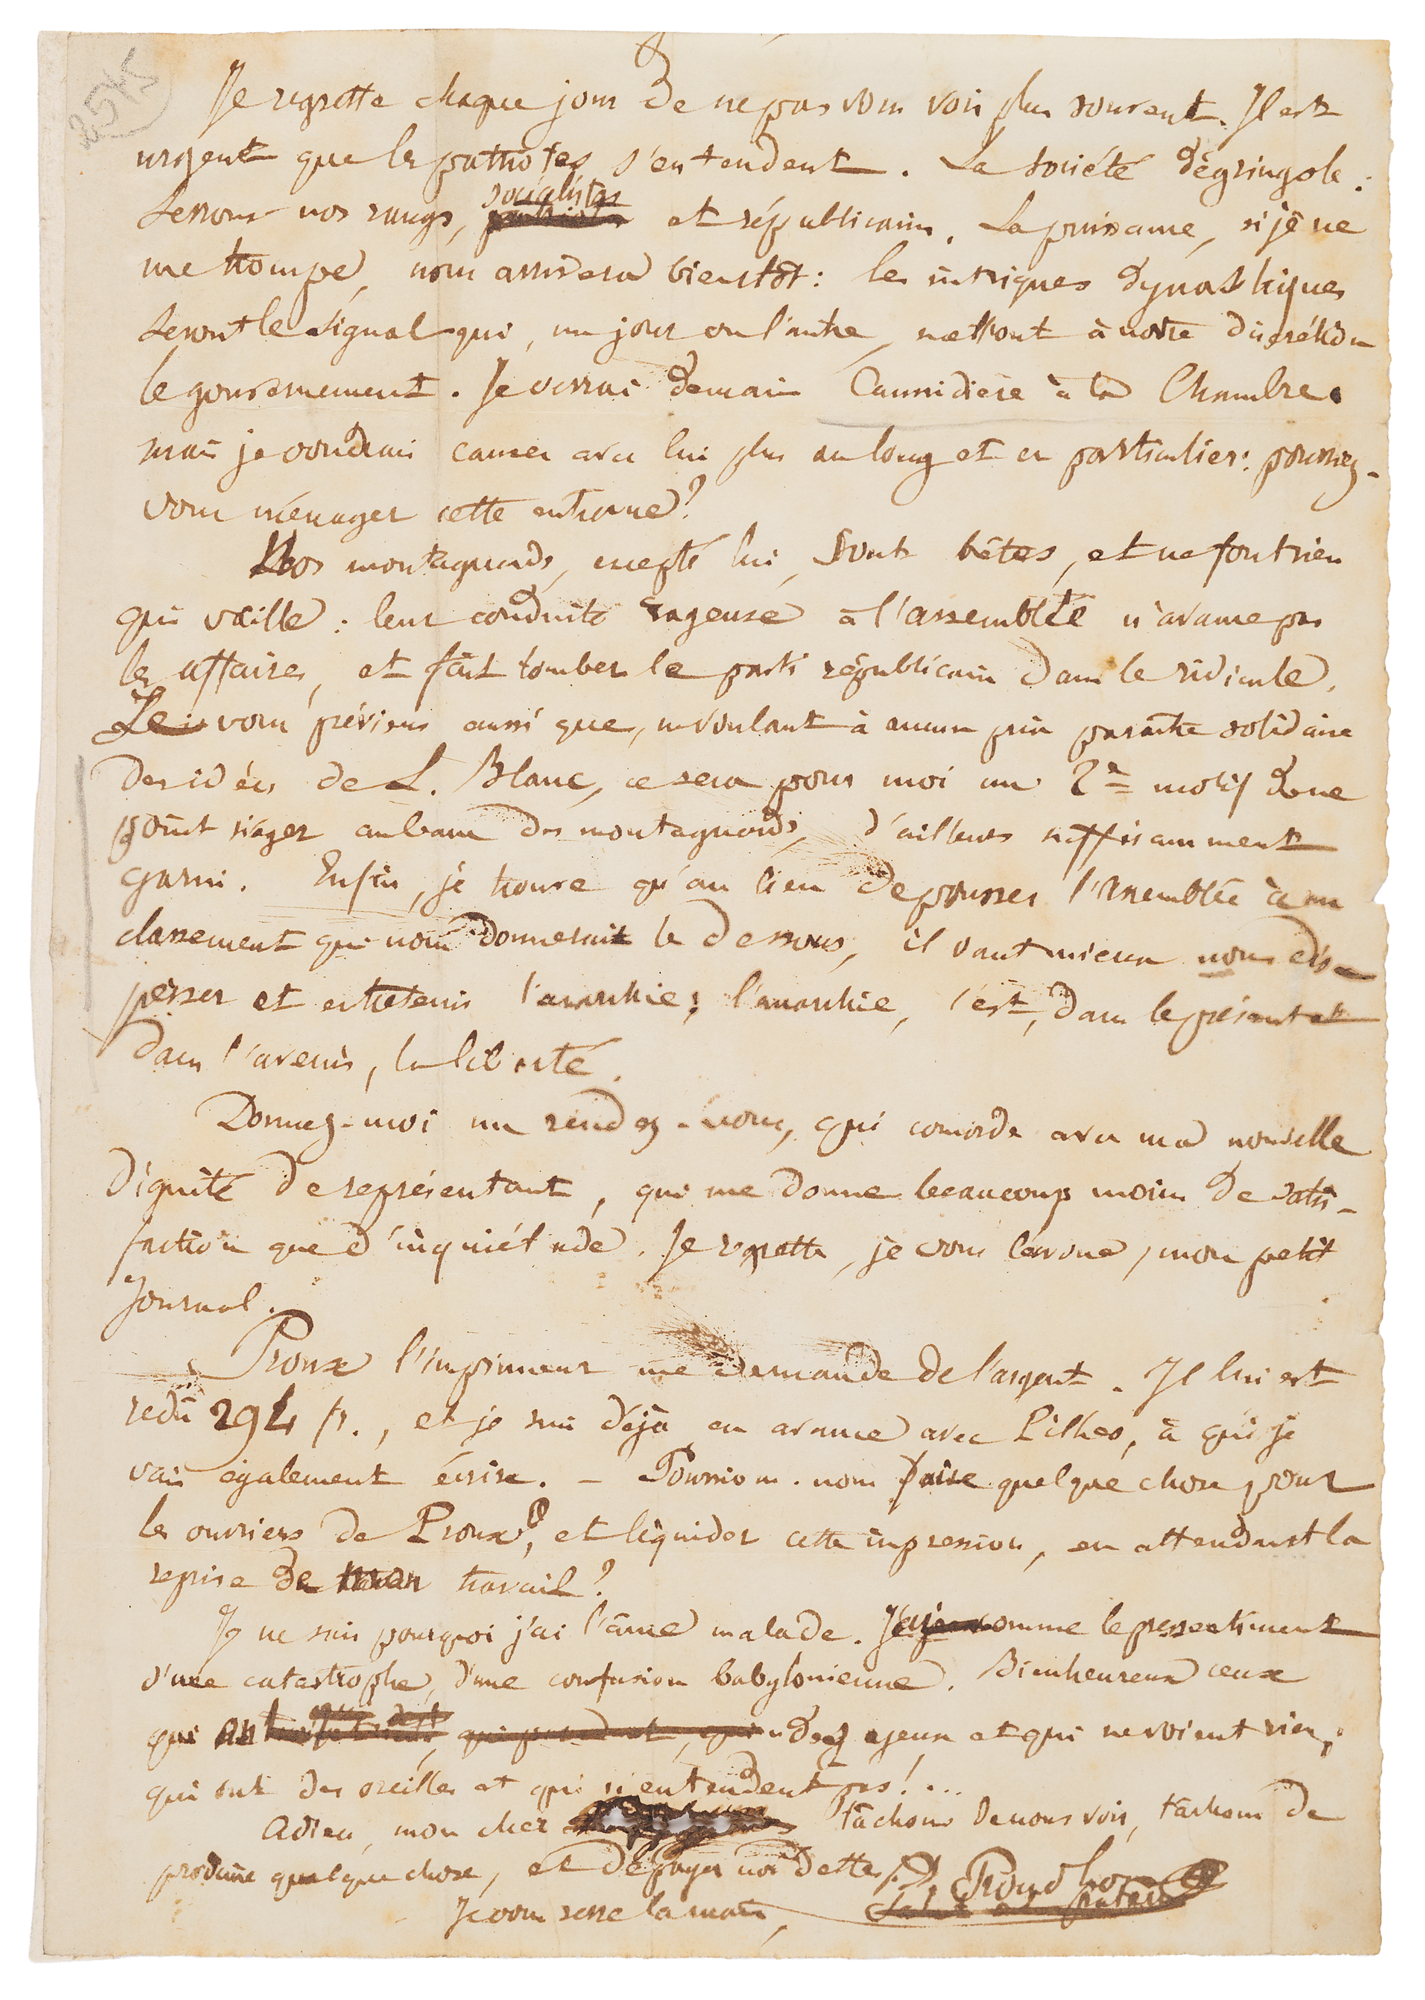 2575
Je regrette chaque jour de ne pas vous voir plus souvent. Il est
urgent que les patriotes s'entendent. La société dégringole :
serrons nos rangs, socialistes et républicains. La puissance, si je ne
me trompe, nous arrivera bientôt : les intrigues dynastiques
seront le signal qui, un jour ou l'autre, mettront à notre discrétion
le gouvernement. Je verrai demain Caussidière à la Chambre.
mais je voudrais causer avec lui plus au long et en particulier : pourriez-
vous ménager cette entrevue ?
Nos montagnards, excepté lui, sont bêtes, et ne font rien
qui vaille : leur conduite rageuse à l'assemblée n'avance pas
les affaires, et fait tomber le parti républicain dans le ridicule.
Je vous préviens aussi que, ne voulant à aucun prix paraître solidaire
des idées de L. Blanc, ce sera pour moi un 2e motif de ne
point siéger au banc des montagnards, d'ailleurs suffisamment
garni. Enfin, je trouve qu'au lieu de pousser l'assemblée à un
classement qui nous donnerait le dessous, il vaut mieux nous dis-
perser et entretenir l'anarchie ; l'anarchie, c'est, dans le présent et
dans l'avenir, la liberté.
Donnez-moi un rendez-vous, qui concorde avec ma nouvelle
dignité de représentant, qui me donne beaucoup moins de satis-
faction que d'inquiétude. Je regrette, je vous l'avoue, mon petit
journal.
Proux l'imprimeur me demande de l'argent. Il lui est
redû 294 fr., et je suis déjà en avance avec Pilhes, à qui je
vais également écrire. – Pourrions-nous faire quelque chose pour
les ouvriers de Proux, et liquider cette impression, en attendant la
reprise de mon travail ?
Je ne sais pourquoi j'ai l'âme malade. J'ai comme le pressentiment
d'une catastrophe, d'une confusion babylonienne. Bienheureux ceux
qui ont des yeux et qui ne voient rien,
qui ont des oreilles et qui n'entendent pas ! ...
Adieu, mon cher tâchons de nous voir, tâchons de
produire quelque chose, et de payer nos dettes.
Je vous serre la main,
P. J. Proudhon